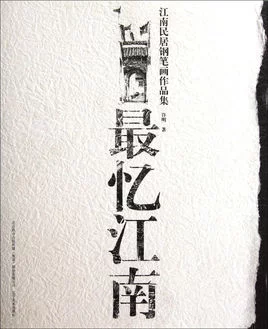 江南民居钢笔画作品集
许明 著
最忆江南